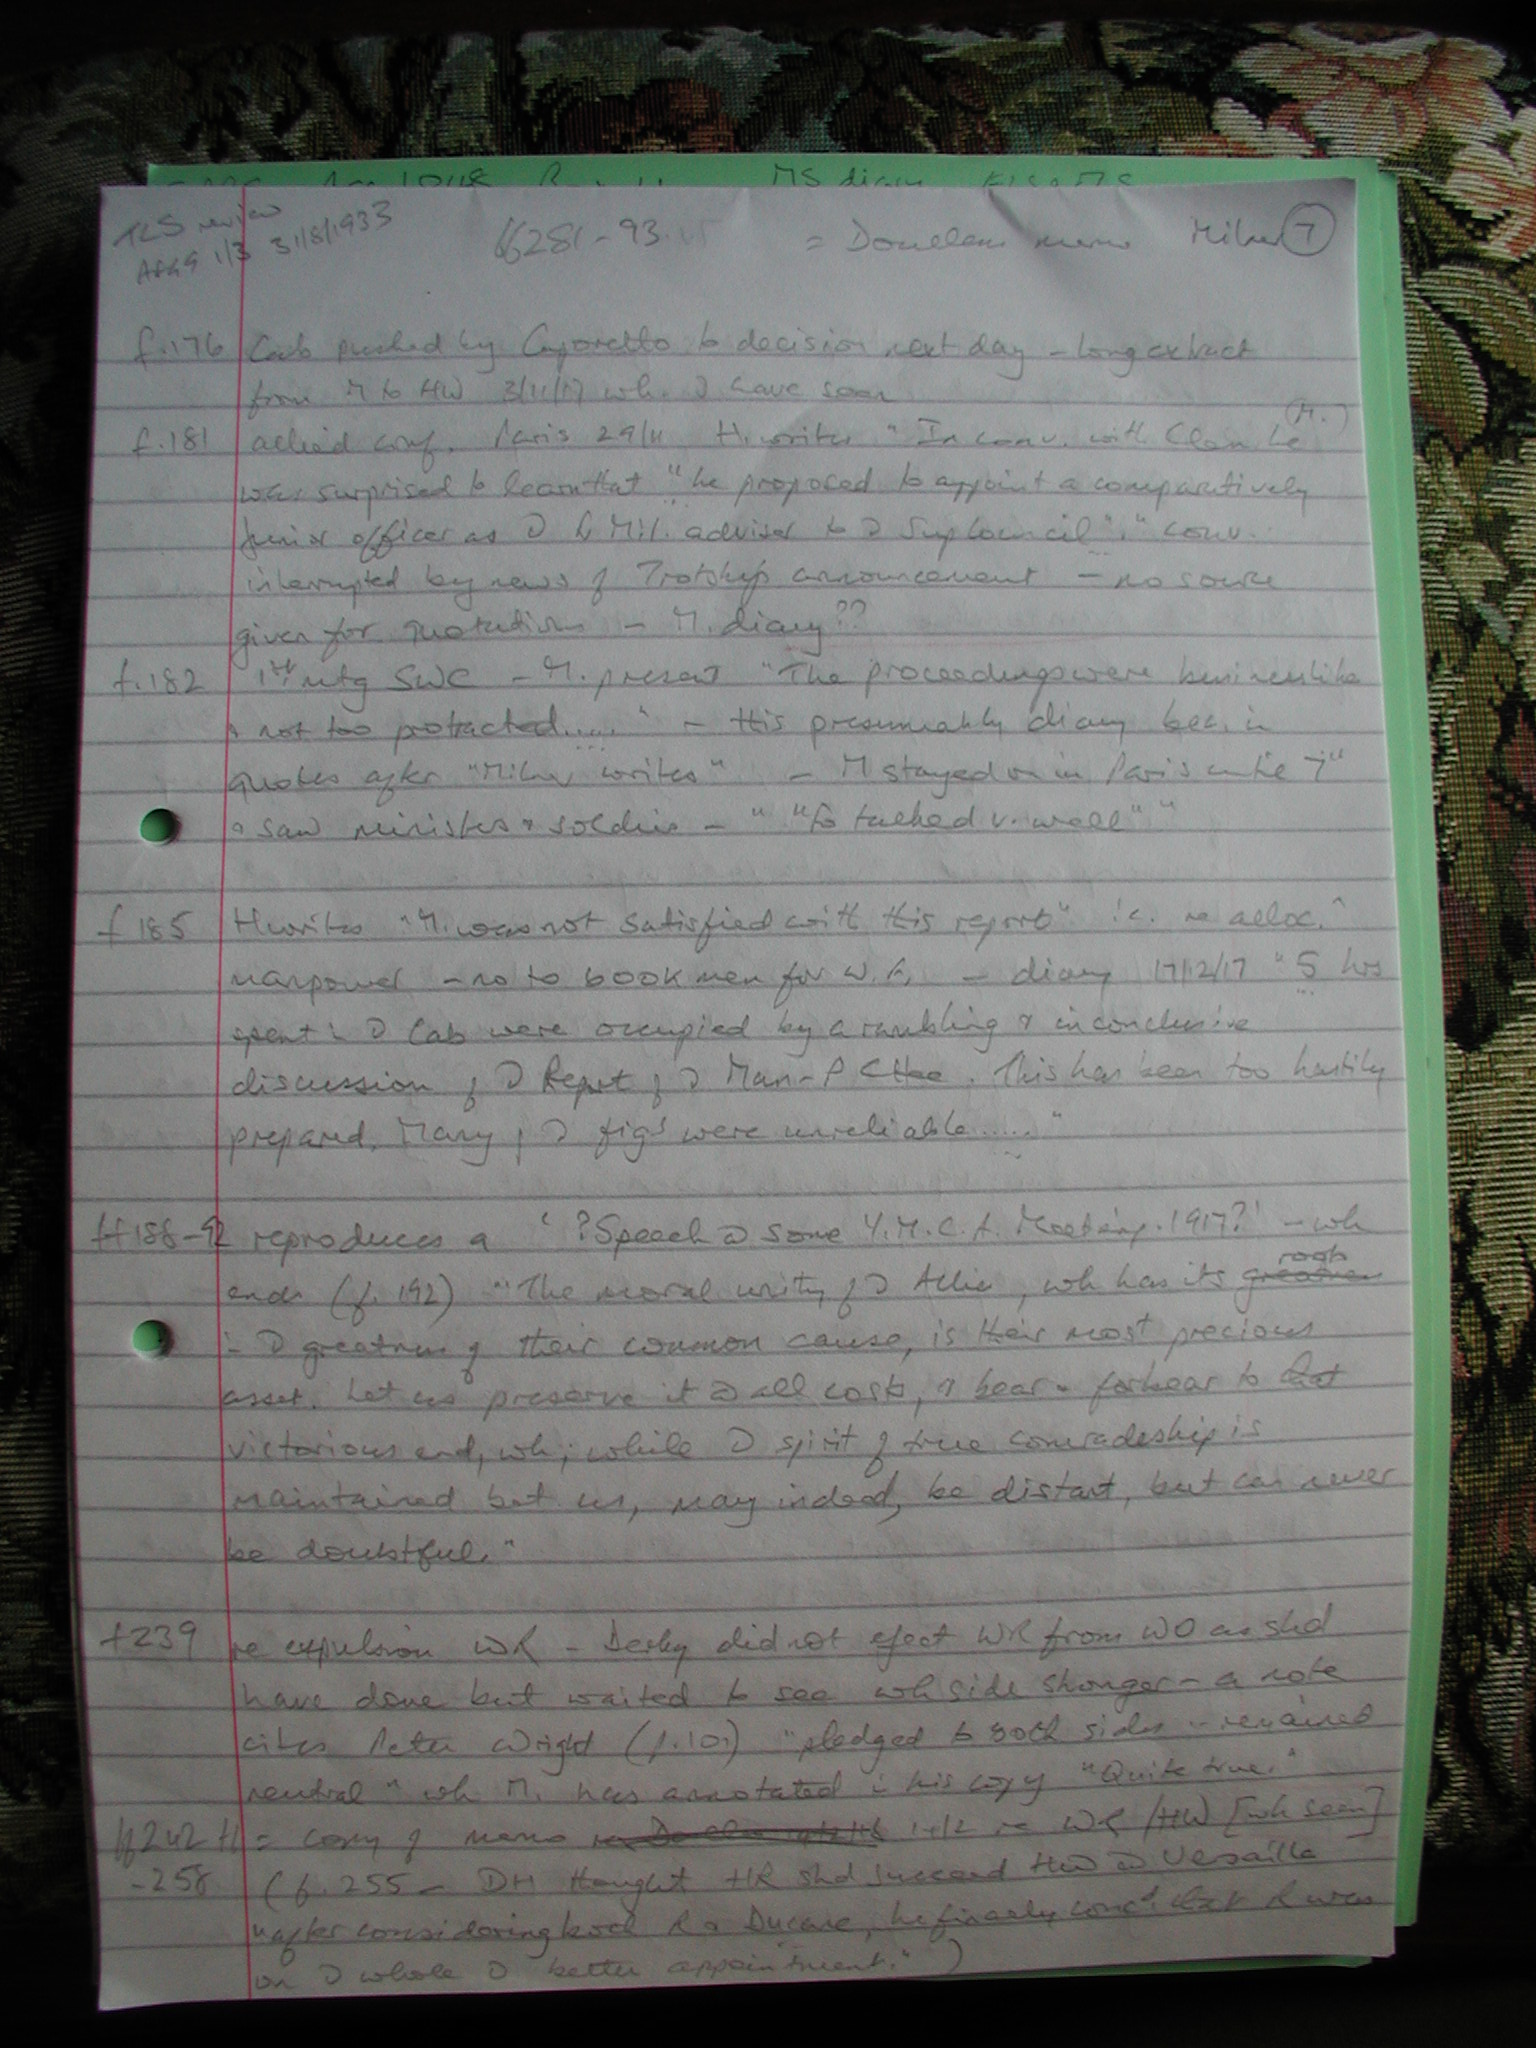 TLS review
1/3 31/8/1933
ff281-93 = Doullens memo Milner 7
f.176 Cab pushed by Caporetto to decision next day - long extract
from M to HW 3/11/17 wh. I have seen
(M.)
f.181 allied conf. Paris 29/11 H. writes "In conv. with Clem he
was surprised to learn that "he proposed to appoint a comparatively
junior officer as Mil. adviser to Sup Council"." conv.
interrupted by news of Trotsky's announcement - no source
given for quotation - M. diary??
f.182 1st mtg SWC - M. present "The proceedings were businesslike
& not too protracted....." - this presumably diary bec. in
quotes after "Milner writes" - M stayed on in Paris
& saw ministers & soldiers - " "Fo talked v. well" "
f185 H writes "M. was not satisfied with this report" i.e. re alloc.
manpower - no to 600K men for W.F. - diary 17/12/17 "5 hrs
spent Cab were occupied by a rambling & inconclusive
discussion Report Man-P Cttee. This has been too hastily
prepared. Many figs were unreliable....."
ff188-92 reproduces a '?Speech some Y.M.C.A. Meeting. 1917?' - wh
roots
ends (f.192) "The moral unity Allies, wh has its greatness
greatness of their common cause, is their most precious
asset. Let us preserve it all costs, & bear & forbear to that
victorious end, wh, while spirit of true comradeship is
maintained bet us, may indeed, be distant, but can never
be doubtful."
f239 re expulsion WR - Derby did not eject WR from WO as shd
have done but waited to see wh side stronger - a note
cites Peter Wright "pledged to both sides - remained
neutral" wh M. has annotated in his copy "Quite true."
ff242 = copy of memo re WR/HW [wh seen]
-258 (f.255 - DH thought HR shd succeed HW Versailles
"after considering both R & Ducane, he finally conc'd that R was
on whole better appointment.")